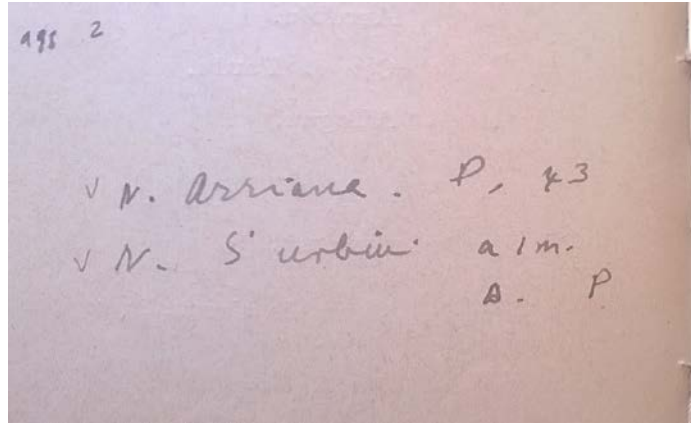 ags 2
√ N. Arriana. P, 43
√ N. S' urbin a 1 m.
A. P